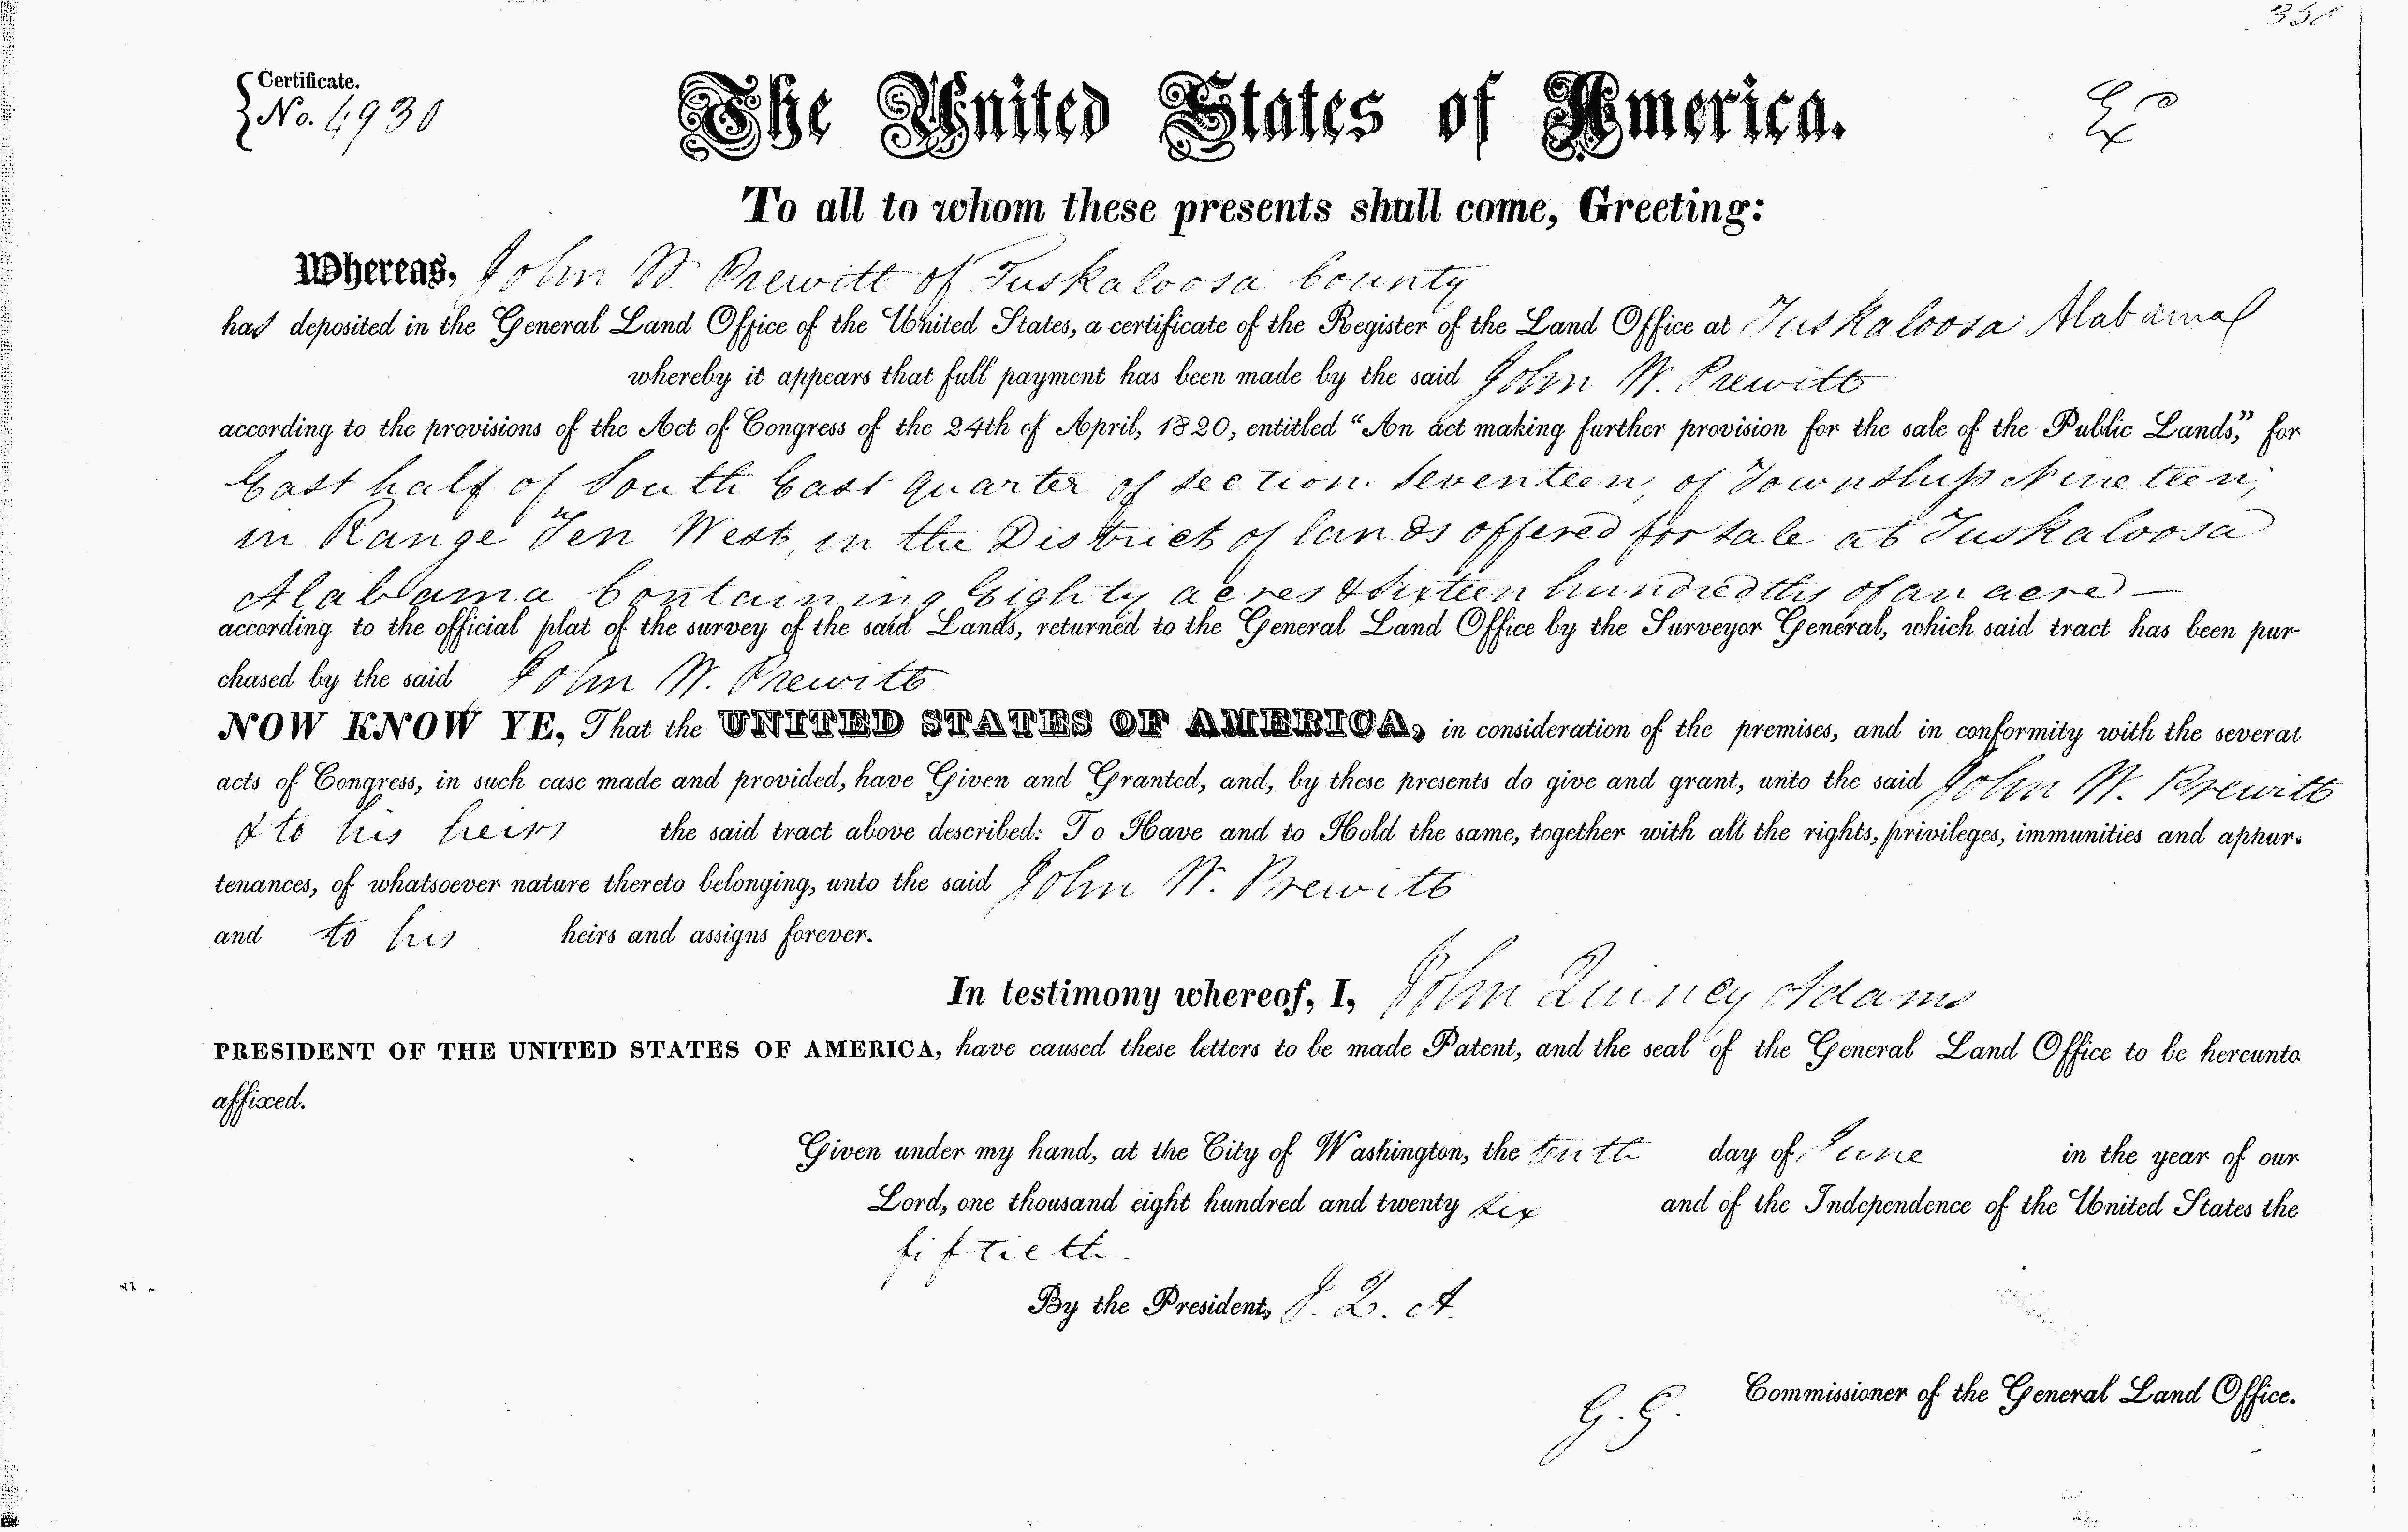 Certificate.
No. 4930
The United States of America.
Ex
To all to whom these presents shall come, Greeting:
Whereas, John W. Prewitt of Tuskaloosa County
has deposited in the General Land Office of the United States, a certificate of the Register of the Land Office at Tuskaloosa Alabama
whereby it appears that full payment has been made by the said John W. Prewitt
according to the provisions of the Act of Congress of the 24th of April, 1820, entitled “An act making further provision for the sale of the Public Lands,” for
East half of South East quarter of section seventeen, of Township Nineteen,
in Range Ten West, in the District of lands offered for sale at Tuskaloosa
Alabama Containing Eighty acres & Sixteen hundredths of an acre —
according to the official plat of the survey of the said Lands, returned to the General Land Office by the Surveyor General, which said tract has been pur-
chased by the said John W. Prewitt
NOW KNOW YE, That the UNITED STATES OF AMERICA, in consideration of the premises, and in conformity with the several
acts of Congress, in such case made and provided, have Given and Granted, and, by these presents do give and grant, unto the said John W. Prewitt
& to his heirs the said tract above described: To Have and to Hold the same, together with all the rights, privileges, immunities and appur-
tenances, of whatsoever nature thereto belonging, unto the said John W. Prewitt
and to his heirs and assigns forever.
In testimony whereof, I, John Quincy Adams
PRESIDENT OF THE UNITED STATES OF AMERICA, have caused these letters to be made Patent, and the seal of the General Land Office to be hereunto
affixed.
Given under my hand, at the City of Washington, the tenth day of June in the year of our
Lord, one thousand eight hundred and twenty six and of the Independence of the United States the
fiftieth.
By the President, J. Q. A.
G. G. Commissioner of the General Land Office.